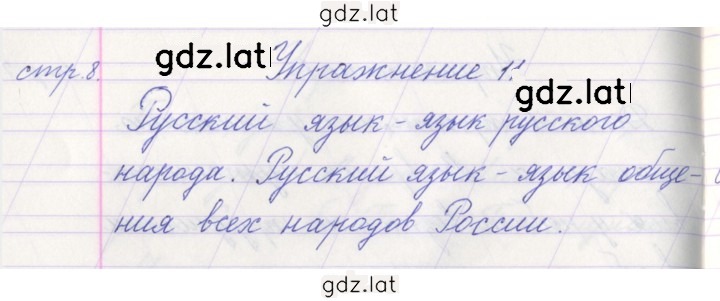 gdz.lat
gdz.lat
стр. 8. Упражнение 1.
gdz.lat
Русский язык - язык русского
народа. Русский язык - язык обще-
ния всех народов России.
gdz.lat
gdz.lat